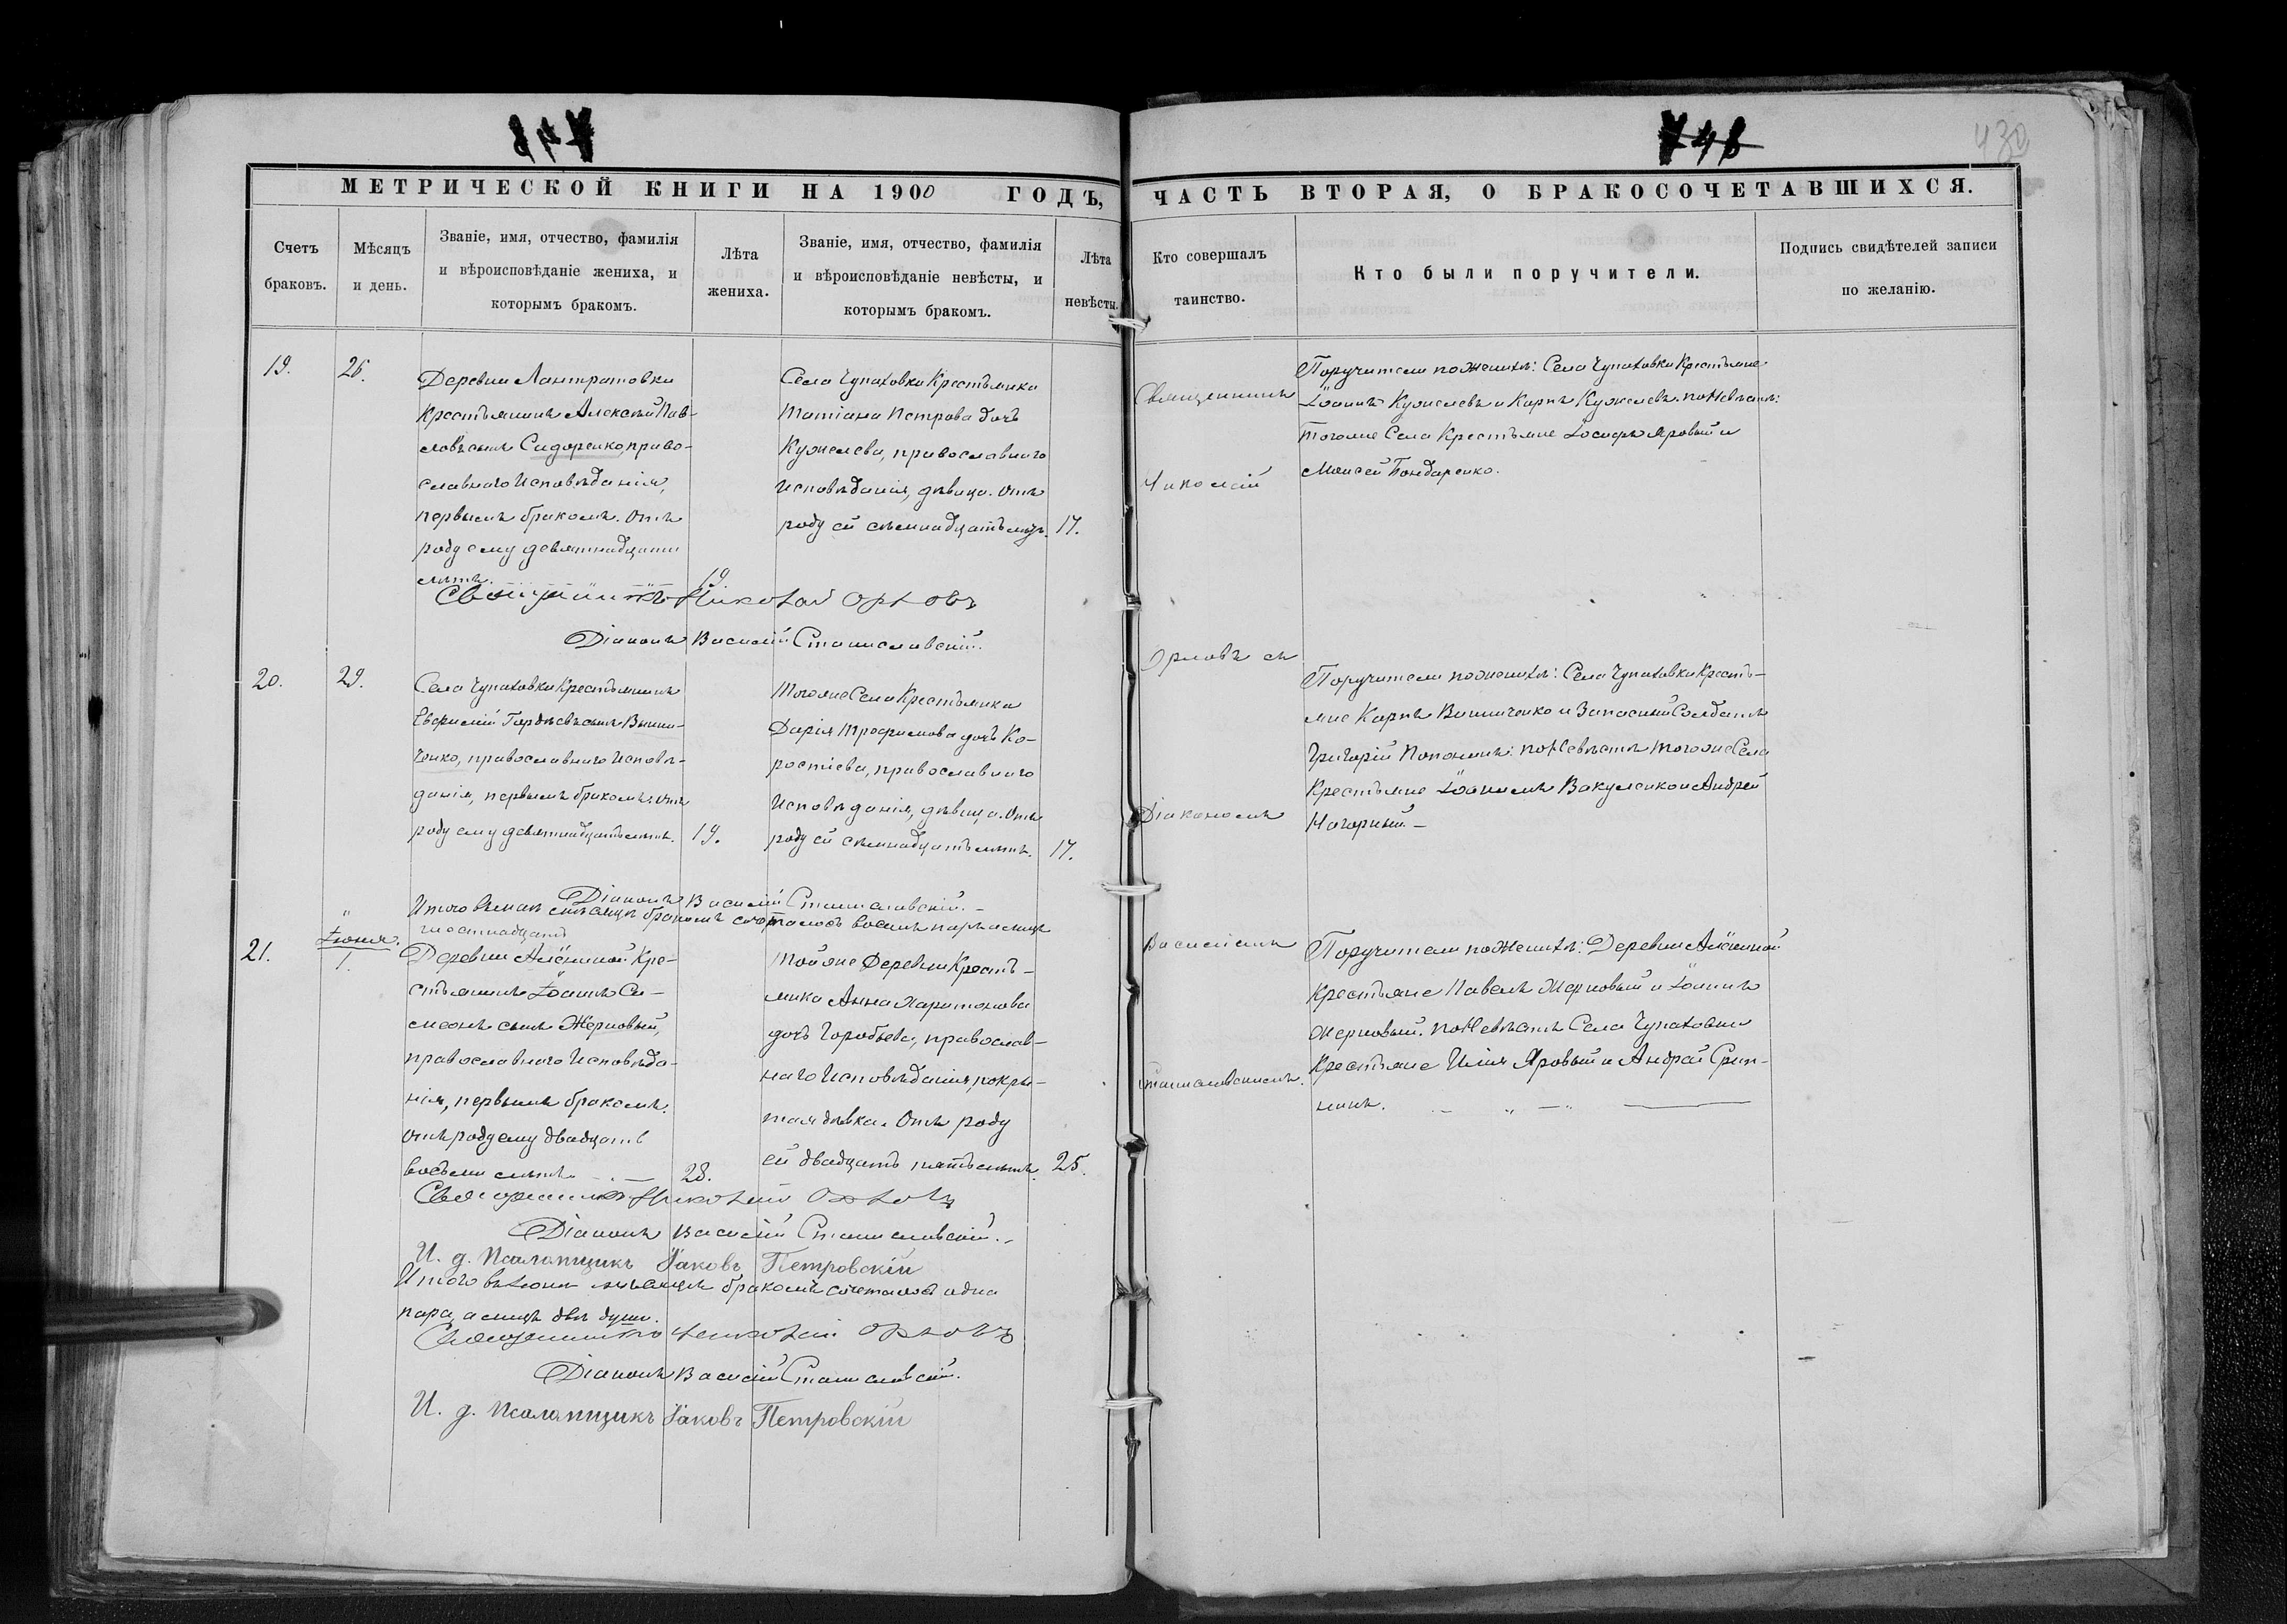 748
430
МЕТРИЧЕСКОЙ КНИГИ НА 1900 ГОДЪ,
ЧАСТЬ ВТОРАЯ, О БРАКОСОЧЕТАВШИХСЯ.
Счетъ браковъ.
Мѣсяцъ и день.
Званіе, имя, отчество, фамилія
и вѣроисповѣданіе жениха, и
которымъ бракомъ.
Лѣта
жениха.
Званіе, имя, отчество, фамилія
и вѣроисповѣданіе невѣсты, и
которымъ бракомъ.
Лѣта
невѣсты.
Кто совершалъ
таинство.
Кто были поручители.
Подпись свидѣтелей записи
по желанію.
19.
26.
Деревни Лантратовки
Крестьянинъ Алексѣй Пав-
ловъ сынъ Сидоренко, право-
славнаго Исповѣданія,
первымъ бракомъ. Отъ
роду ему девятнадцать
лѣтъ.
19.
Села Чупаховки Крестьянка
Татіана Петрова дочь
Кужелева, православнаго
Исповѣданія, дѣвица. Отъ
роду ей семнадцать лѣтъ.
17.
Священникъ Николай Орловъ
Діаконъ Василій Станиславскій.
Священникъ
Николай
Орловъ съ
Діакономъ
Василіемъ
Станиславскимъ.
Поручители по женихѣ: Села Чупаховки Крестьяне
Іоаннъ Кужелевъ и Карпъ Кужелевъ. по Невѣстѣ:
тогоже Села Крестьяне Іосифъ Яровый и
Моисей Бондаренко.
20.
29.
Села Чупаховки Крестьянинъ
Евфимій Гордѣевъ сынъ Винни-
ченко, православнаго Исповѣ-
данія, первымъ бракомъ. Отъ
роду ему девятнадцать лѣтъ.
19.
Тогоже Села Крестьянка
Дарія Трофимова дочь Ко-
ростіева, православнаго
Исповѣданія, дѣвица. Отъ
роду ей семнадцать лѣтъ.
17.
Поручители по женихѣ: Села Чупаховки Кресть-
яне Карпъ Винниченко и Запасный Солдатъ
Григорій Попокинъ: по Невѣстѣ тогоже Села
Крестьяне Іоаннъ Вакуленко и Андрей
Нагорный.
Діаконъ Василій Станиславскій.
Итого въ маѣ мѣсяцѣ бракомъ сочеталось восемь паръ а лицъ
шестнадцать
Іюня.
21.
1.
Деревни Алёшиной Кре-
стьянинъ Іоаннъ Си-
меонъ сынъ Жерновый,
православнаго Исповѣда-
нія, первымъ бракомъ.
Отъ роду ему двадцать
восемь лѣтъ.
28.
Тойже Деревни Кресть-
янка Анна Харитонова
дочь Горобьева, православ-
наго Исповѣданія, покры-
тая дѣвка. Отъ роду
ей двадцать пять лѣтъ.
25.
Поручители по Женихѣ: Деревни Алёшиной
Крестьяне Павелъ Жерновый и Іоаннъ
Жерновый. по Невѣстѣ Села Чупаховки
Крестьяне Илія Яровый и Андрей
Священникъ Николай Орловъ
Діаконъ Василій Станиславскій.
И. д. Псаломщикъ Іаковъ Петровскій
Итого въ Іюнѣ мѣсяцѣ бракомъ сочеталось одна
пара, а лицъ двѣ души.
Священникъ Николай Орловъ
Діаконъ Василій Станиславскій.
И. д. Псаломщикъ Іаковъ Петровскій